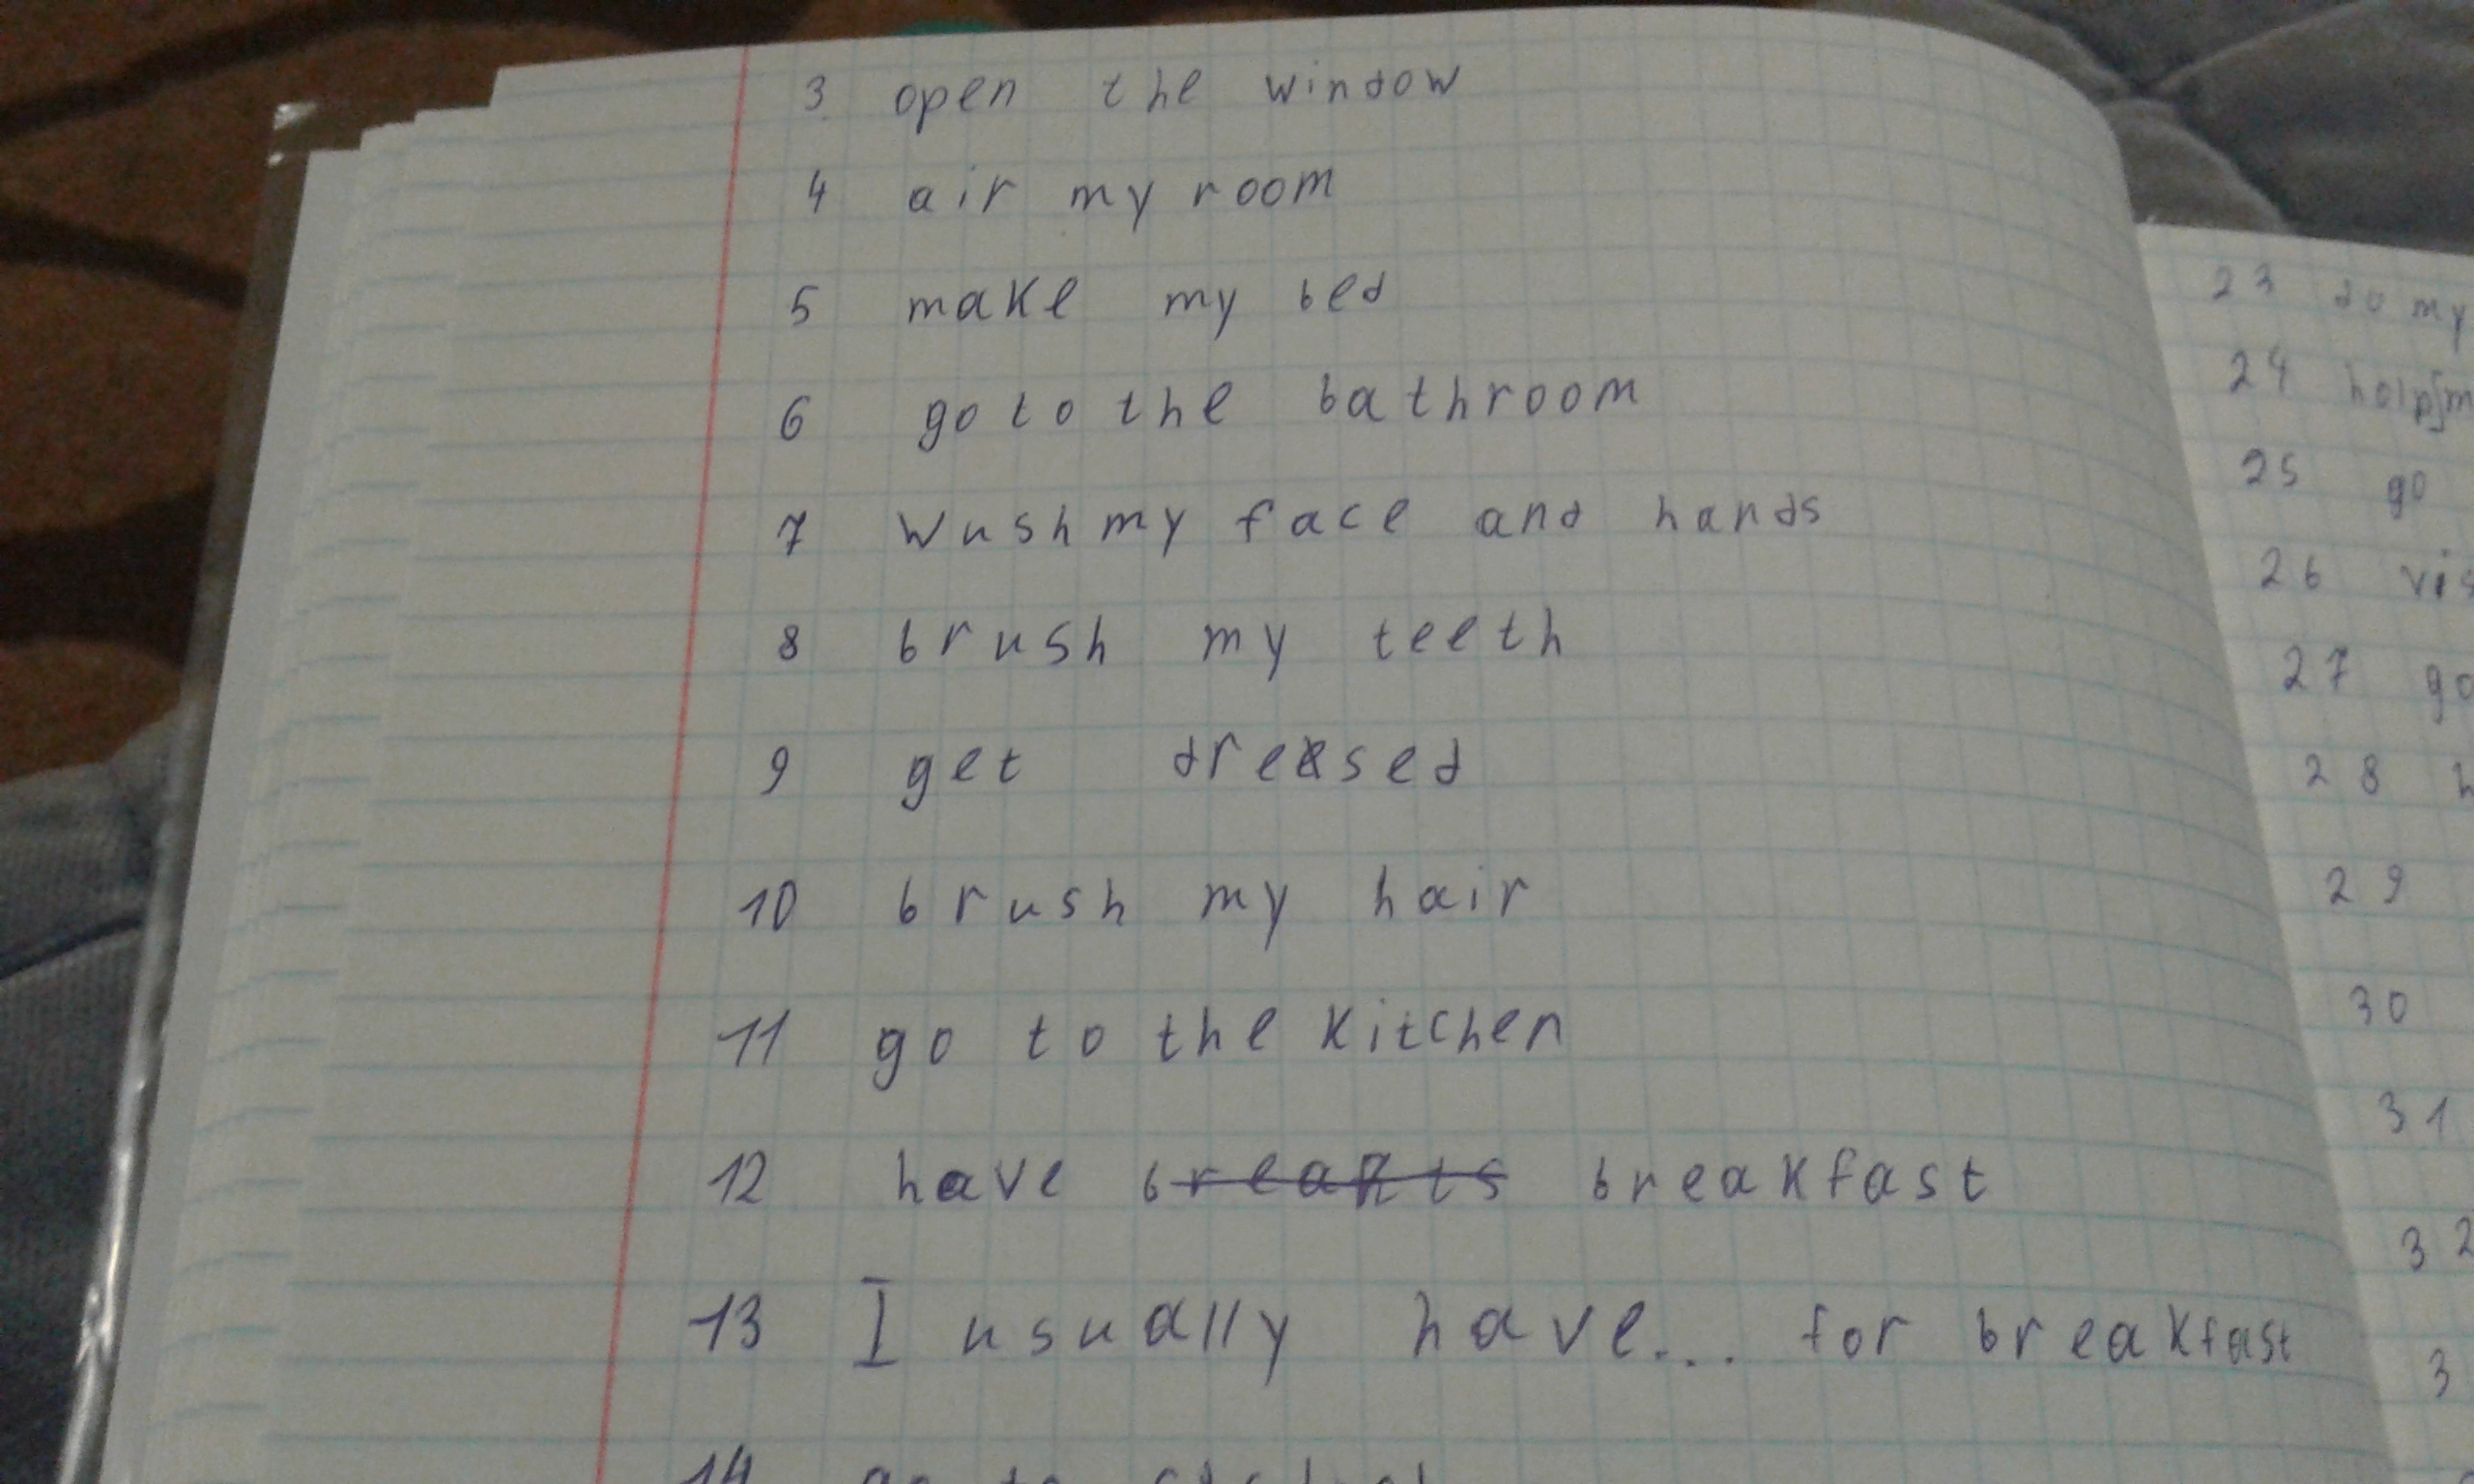 3 open the window
4 air my room
5 make my bed
6 go to the bathroom
7 Wush my face and hands
8 brush my teeth
9 get dressed
10 brush my hair
11 go to the kitchen
12 have breakfast
13 I usually have... for breakfast
14 go to
23 do my
24
25 go
26 vis
27 go
28 h
29
30
31
32
3